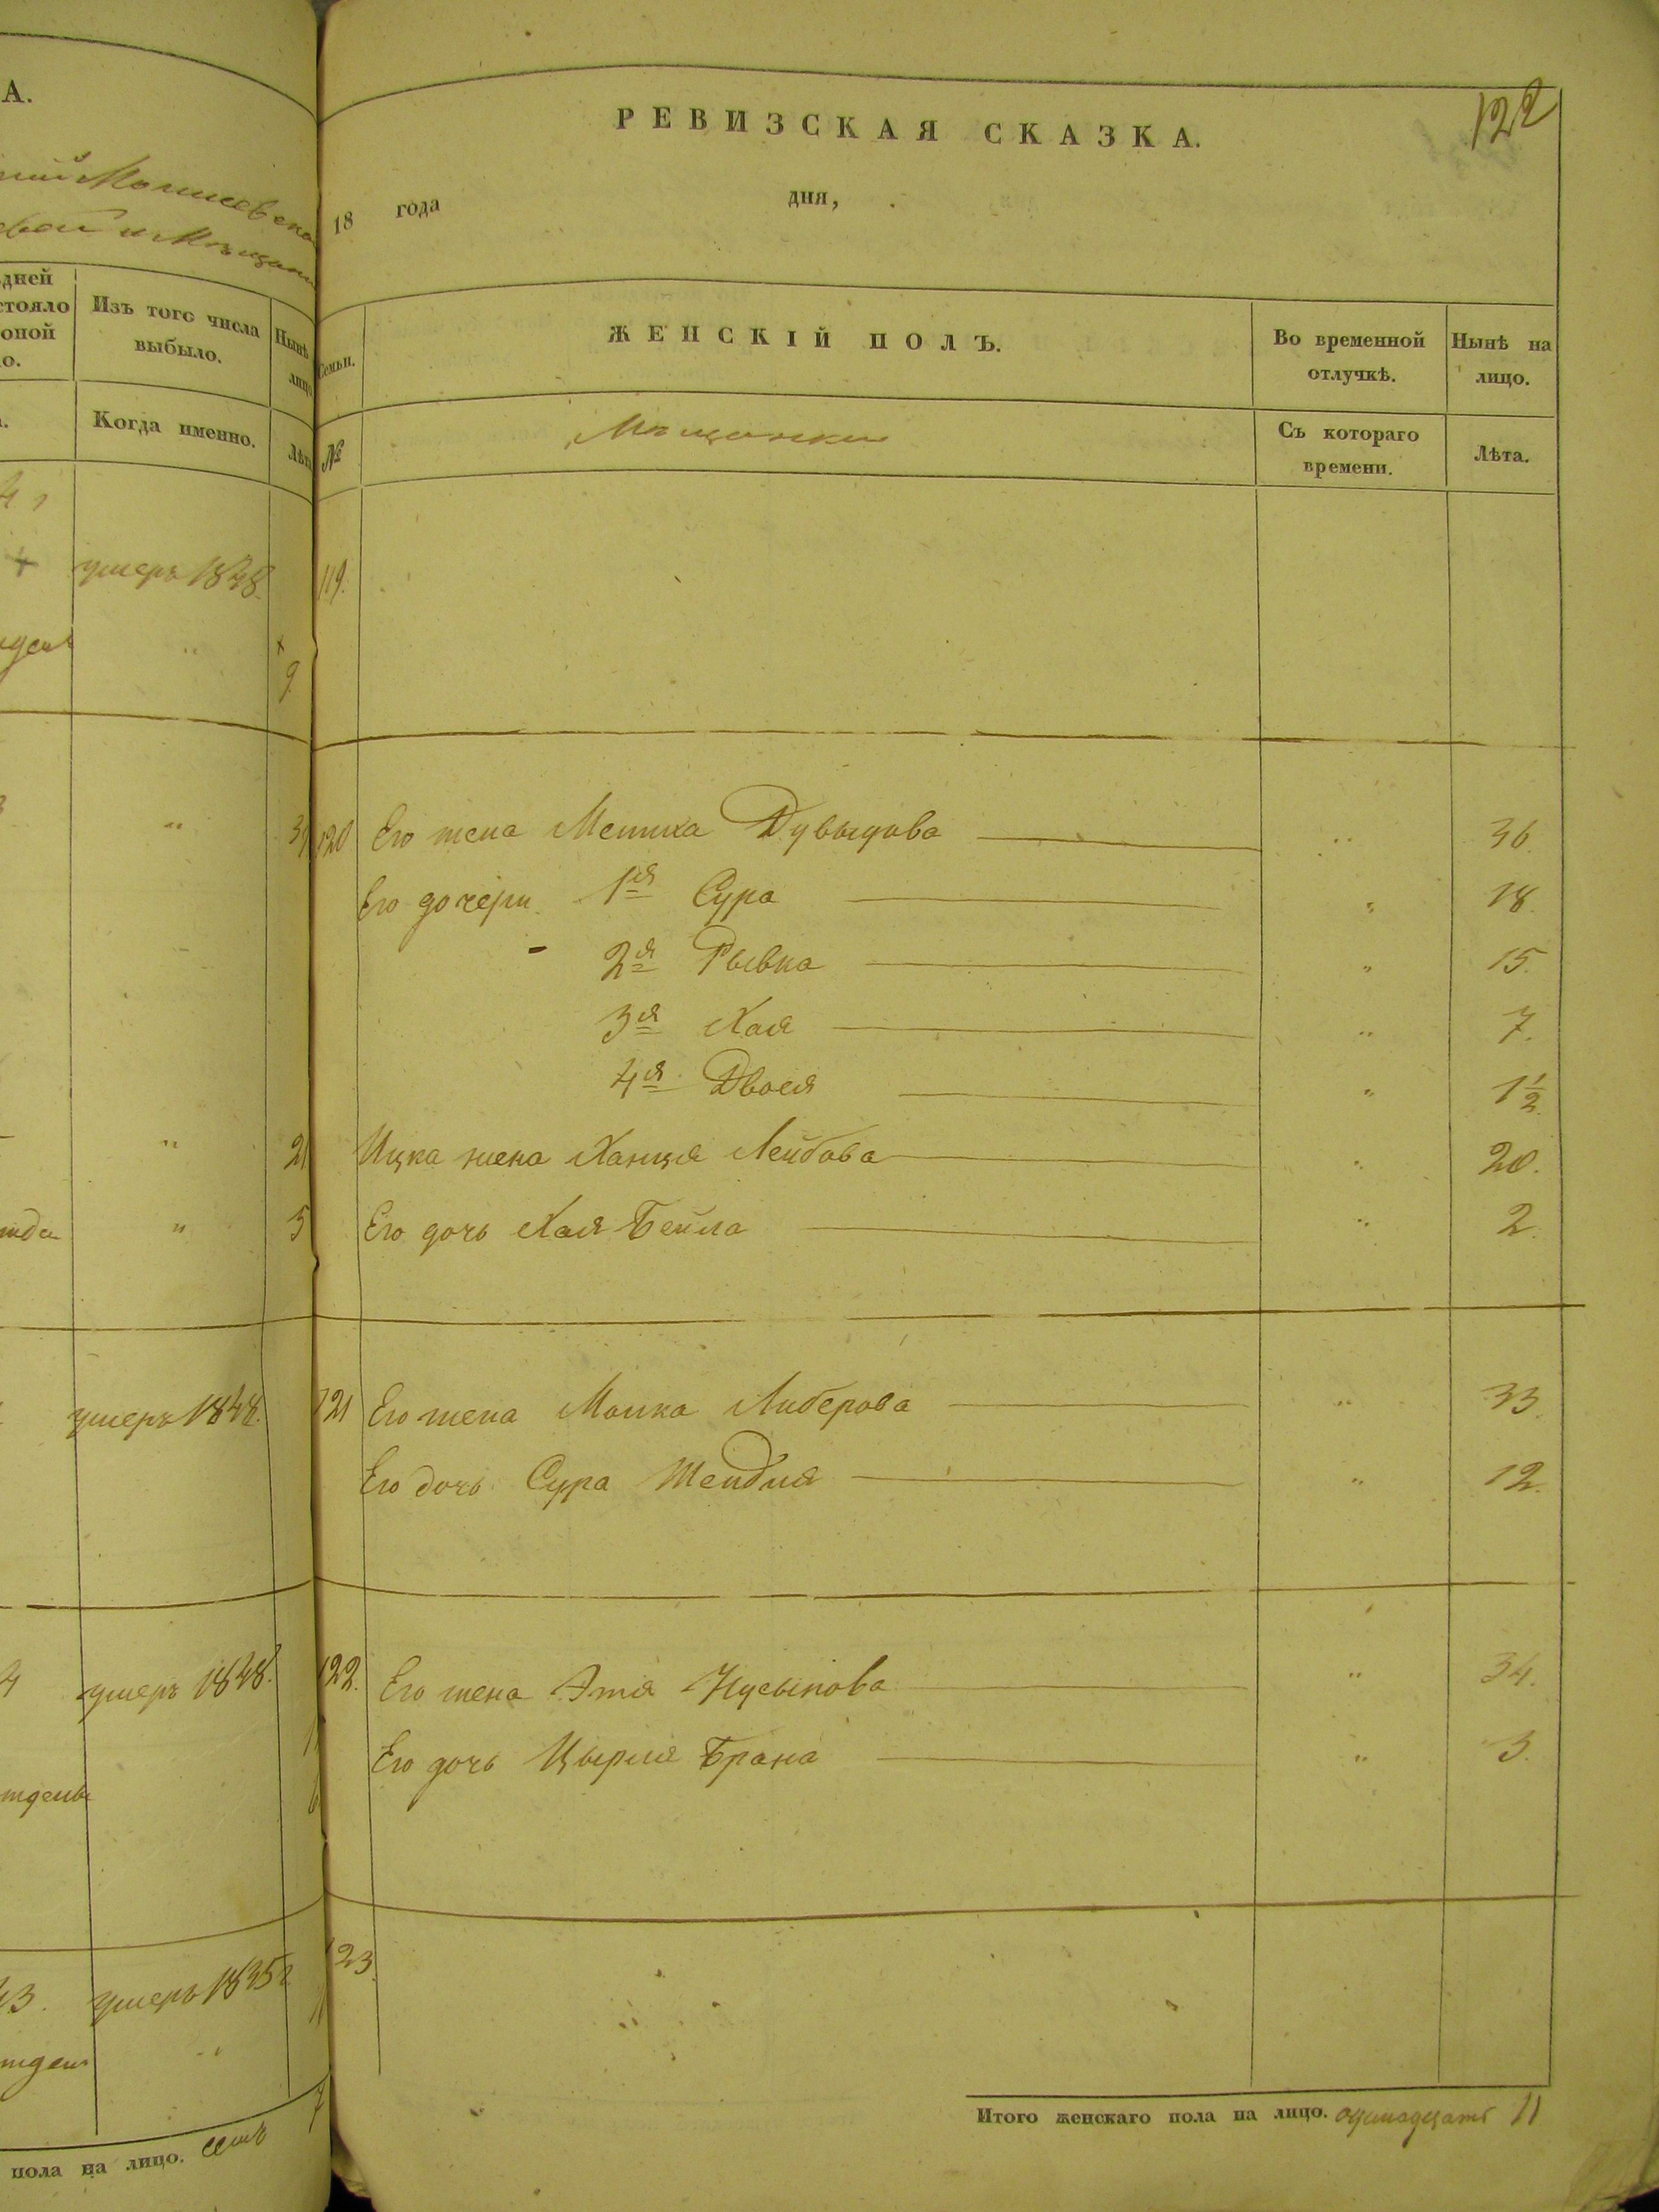 А.
дней
стояло
оной
о.
Изъ того числа
выбыло.
Нынѣ
лицо
Когда именно.
Лѣта
умеръ 1848.
9.
"
"
21
"
5
умеръ 1848.
4 умеръ 1848.
43. умеръ 1835
пола на лицо. семь 7
122
РЕВИЗСКАЯ СКАЗКА.
18 года дня,
Семьи. ЖЕНСКІЙ ПОЛЪ. Во временной отлучкѣ. Нынѣ на лицо.
№ Мѣщанки Съ котораго времени. Лѣта.
119.
120 Его жена Мениха Дувыдова " 36.
Его дочери 1я Сура " 18.
2я Рывка " 15.
3я Хая " 7.
4я Двося " 1½.
Ицка жена Ханця Лейбова " 20.
Его дочь Хая Бейла " 2.
121 Его жена Малка Либерова " 33.
Его дочь Сура Шендля " 12.
122. Его жена Этя Нусынова " 34.
Его дочь Цырля Брана " 3.
123.
Итого женскаго пола на лицо. одинадцать 11